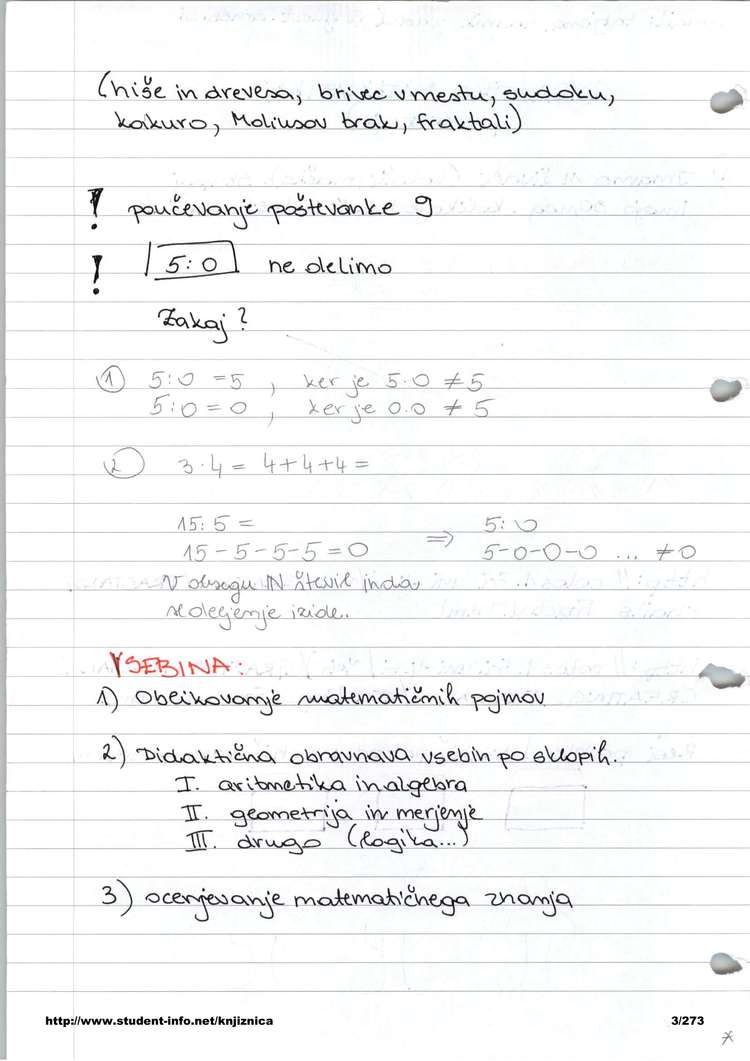 (hiše in drevesa, brivec v mestu, sudoku,
kakuro, Moliusov brak, fraktali)
! poučevanje poštevanke 9
! 5:0 ne delimo
Zakaj?
1 5:0 = 5, ker je 5·0 ≠ 5
5:0 = 0, ker je 0·0 ≠ 5
2 3·4 = 4+4+4 =
15:5 = 5:0
15-5-5-5=0 ⇒ 5-0-0-0 ... ≠0
V obsegu N števil inda
se deljenje izide..
VSEBINA:
1) Oblikovanje matematičnih pojmov
2) Didaktična obravnava vsebin po sklopih.
I. aritmetika in algebra
II. geometrija in merjenje
III. drugo (logika...)
3) ocenjevanje matematičnega znanja
http://www.student-info.net/knjiznica 3/273
*